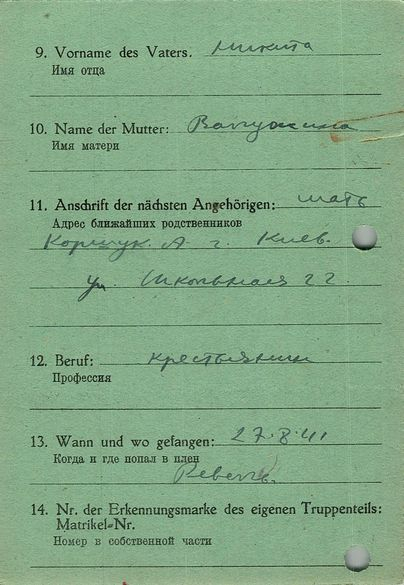 9. Vorname des Vaters. Микита
Имя отца
10. Name der Mutter:
Имя матери
11. Anschrift der nächsten Angehörigen: мать
Адрес ближайших родственников
Коршук А г. Киев.
ул Школьная 22
12. Beruf: крестьянин
Профессия
13. Wann und wo gefangen: 27.8.41
Когда и где попал в плен
Ревель.
14. Nr. der Erkennungsmarke des eigenen Truppenteils:
Matrikel-Nr.
Номер в собственной части